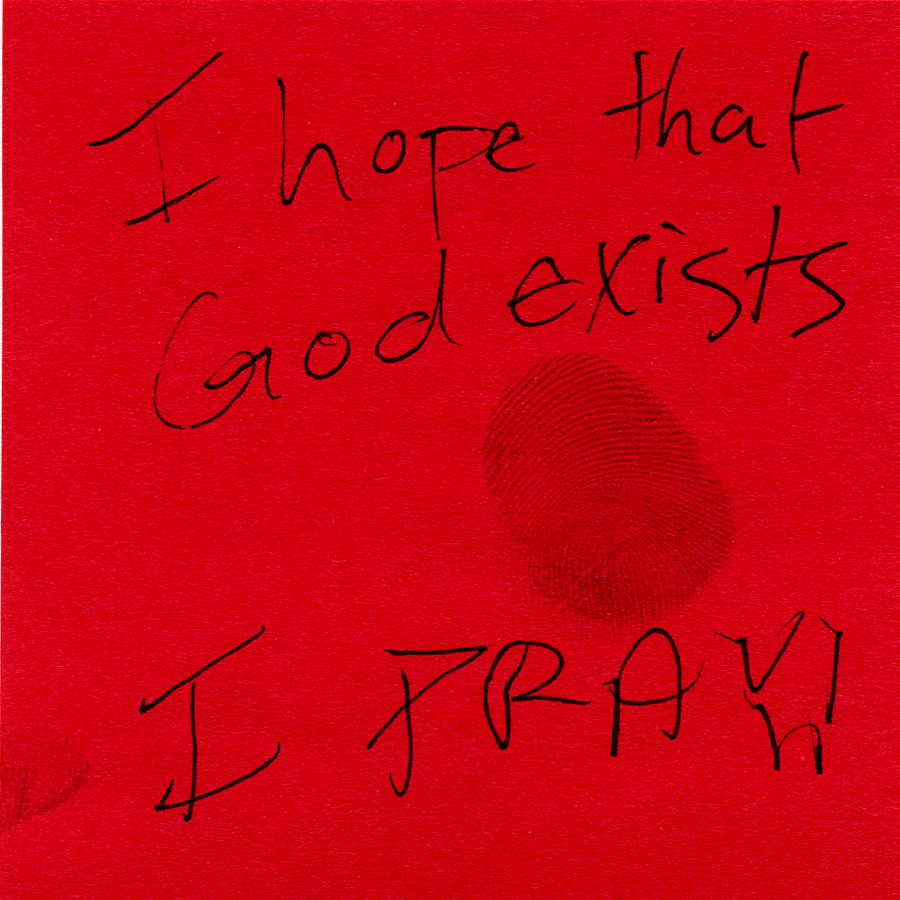 I hope that
God exists
I PRAY